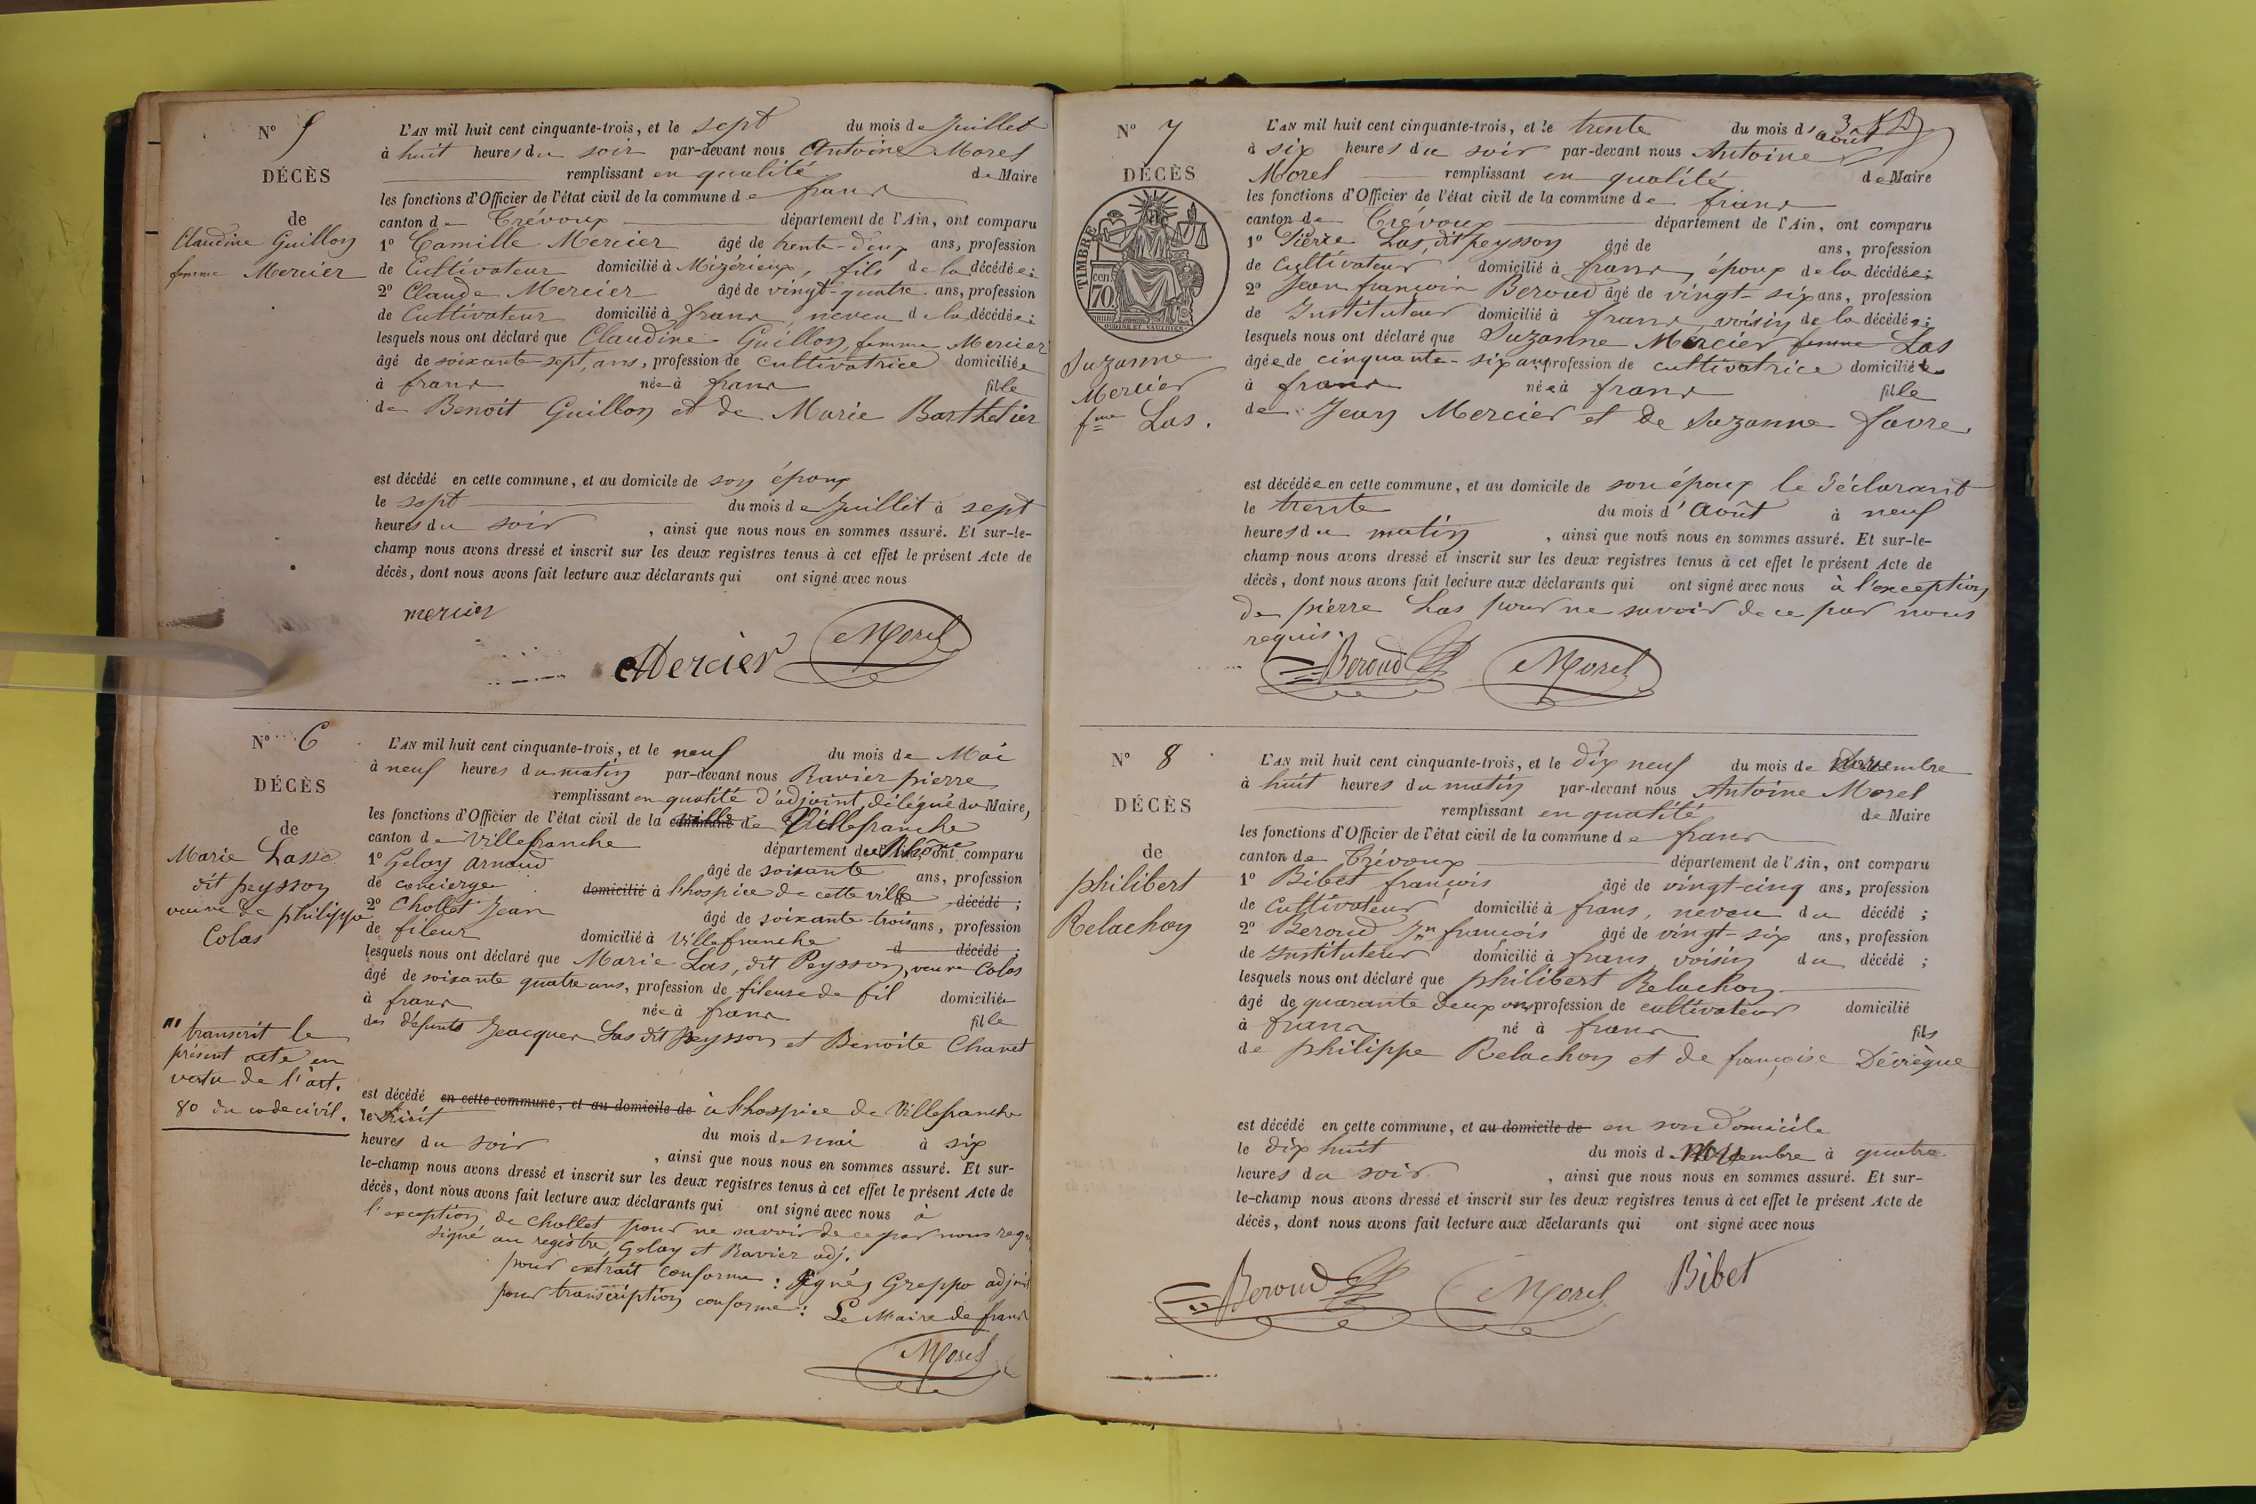 N° 5
DÉCÈS
de
Claudine Guillon
femme Mercier
L'AN mil huit cent cinquante-trois, et le sept du mois de Juillet
à huit heures du soir par-devant nous Antoine Morel
remplissant en qualité de Maire
les fonctions d'Officier de l'état civil de la commune de frans
canton de Trévoux département de l'Ain, ont comparu
1° Camille Mercier âgé de trente-deux ans, profession
de Cultivateur domicilié à Mizérieux, fils de la décédée;
2° Claude Mercier âgé de vingt-quatre ans, profession
de Cultivateur domicilié à frans, neveu de la décédée;
lesquels nous ont déclaré que Claudine Guillon, femme Mercier
âgé de soixante-sept, ans, profession de cultivatrice domiciliée
à frans née à frans fille
de Benoit Guillon et de Marie Barthelier
est décédé en cette commune, et au domicile de son époux
le sept du mois de Juillet à sept
heures du soir, ainsi que nous nous en sommes assuré. Et sur-le-
champ nous avons dressé et inscrit sur les deux registres tenus à cet effet le présent Acte de
décès, dont nous avons fait lecture aux déclarants qui ont signé avec nous
mercier
Mercier Morel
N° 6
DÉCÈS
de
Marie Lasse
dit peysson
veuve de philippe
Colas
transcrit le
présent acte en
vertu de l'art.
80 du code civil.
L'AN mil huit cent cinquante-trois, et le neuf du mois de Mai
à neuf heures du matin par-devant nous Ravier pierre
remplissant en qualité d'adjoint, délégué du Maire,
les fonctions d'Officier de l'état civil de la commune ville de Villefranche
canton de Villefranche département du Rhône, ont comparu
1° Gelay arnaud âgé de soixante ans, profession
de concierge domicilié à l'hospice de cette ville décédé;
2° Chollet Jean âgé de soixante-trois ans, profession
de fileur domicilié à Villefranche d décédé;
lesquels nous ont déclaré que Marie Las, dit Peysson, veuve Colas
âgé de soixante quatre ans, profession de fileuse de fil domiciliée
à frans née à frans fille
des défunts Jacques Las dit Peysson et Benoite Chanet
est décédé en cette commune, et au domicile de à l'hospice de Villefranche
le huit du mois de mai à six
heures du soir, ainsi que nous nous en sommes assuré. Et sur-
le-champ nous avons dressé et inscrit sur les deux registres tenus à cet effet le présent Acte de
décès, dont nous avons fait lecture aux déclarants qui ont signé avec nous à
l'exception de Chollet pour ne savoir de ce par nous requ
signé au registre, Gelay et Ravier adj.
pour extrait conforme: signé, Greppo adjoint
pour transcription conforme: Le Maire de frans
Morel
N° 7
DÉCÈS
TIMBRE
70 cen
Suzanne
Mercier
fme Las.
L'AN mil huit cent cinquante-trois, et le trente du mois d'août
à six heures du soir par-devant nous Antoine
Morel remplissant en qualité de Maire
les fonctions d'Officier de l'état civil de la commune de frans
canton de Trévoux département de l'Ain, ont comparu
1° Pierre Las, dit peysson âgé de ans, profession
de Cultivateur domicilié à frans, époux de la décédée;
2° Jean françois Beroud âgé de vingt-six ans, profession
de Instituteur domicilié à frans, voisin de la décédée;
lesquels nous ont déclaré que Suzanne Mercier femme Las
âgée de cinquante-six ans, profession de cultivatrice domiciliée
à frans née à frans fille
de Jean Mercier et de Suzanne favre.
est décédée en cette commune, et au domicile de son époux le déclarant
le trente du mois d'Août à neuf
heures du matin, ainsi que nous nous en sommes assuré. Et sur-le-
champ nous avons dressé et inscrit sur les deux registres tenus à cet effet le présent Acte de
décès, dont nous avons fait lecture aux déclarants qui ont signé avec nous à l'exception
de pierre Las pour ne savoir de ce par nous
requis.
Beroud Morel
N° 8
DÉCÈS
de
philibert
Relachon
L'AN mil huit cent cinquante-trois, et le dix neuf du mois de
à huit heures du matin par-devant nous Antoine Morel
remplissant en qualité de Maire
les fonctions d'Officier de l'état civil de la commune de frans
canton de Trévoux département de l'Ain, ont comparu
1° Bibet françois âgé de vingt-cinq ans, profession
de Cultivateur domicilié à frans, neveu du décédé;
2° Beroud Jn françois âgé de vingt-six ans, profession
de Instituteur domicilié à frans, voisin du décédé;
lesquels nous ont déclaré que philibert Relachon
âgé de quarante deux ans, profession de cultivateur domicilié
à frans né à frans fils
de philippe Relachon et de françoise Dévièque
est décédé en cette commune, et au domicile de en son domicile
le dix huit du mois d à quatre
heures du soir, ainsi que nous nous en sommes assuré. Et sur-
le-champ nous avons dressé et inscrit sur les deux registres tenus à cet effet le présent Acte de
décès, dont nous avons fait lecture aux déclarants qui ont signé avec nous
Beroud Morel Bibet